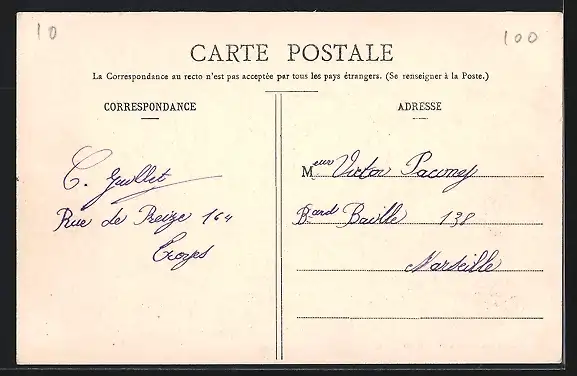 10
100
CARTE POSTALE
La Correspondance au recto n'est pas acceptée par tous les pays étrangers. (Se renseigner à la Poste.)
CORRESPONDANCE
C. Guillet
Rue de Preize 164
Troyes
ADRESSE
Meur Victor
Bard Baille 138
Marseille